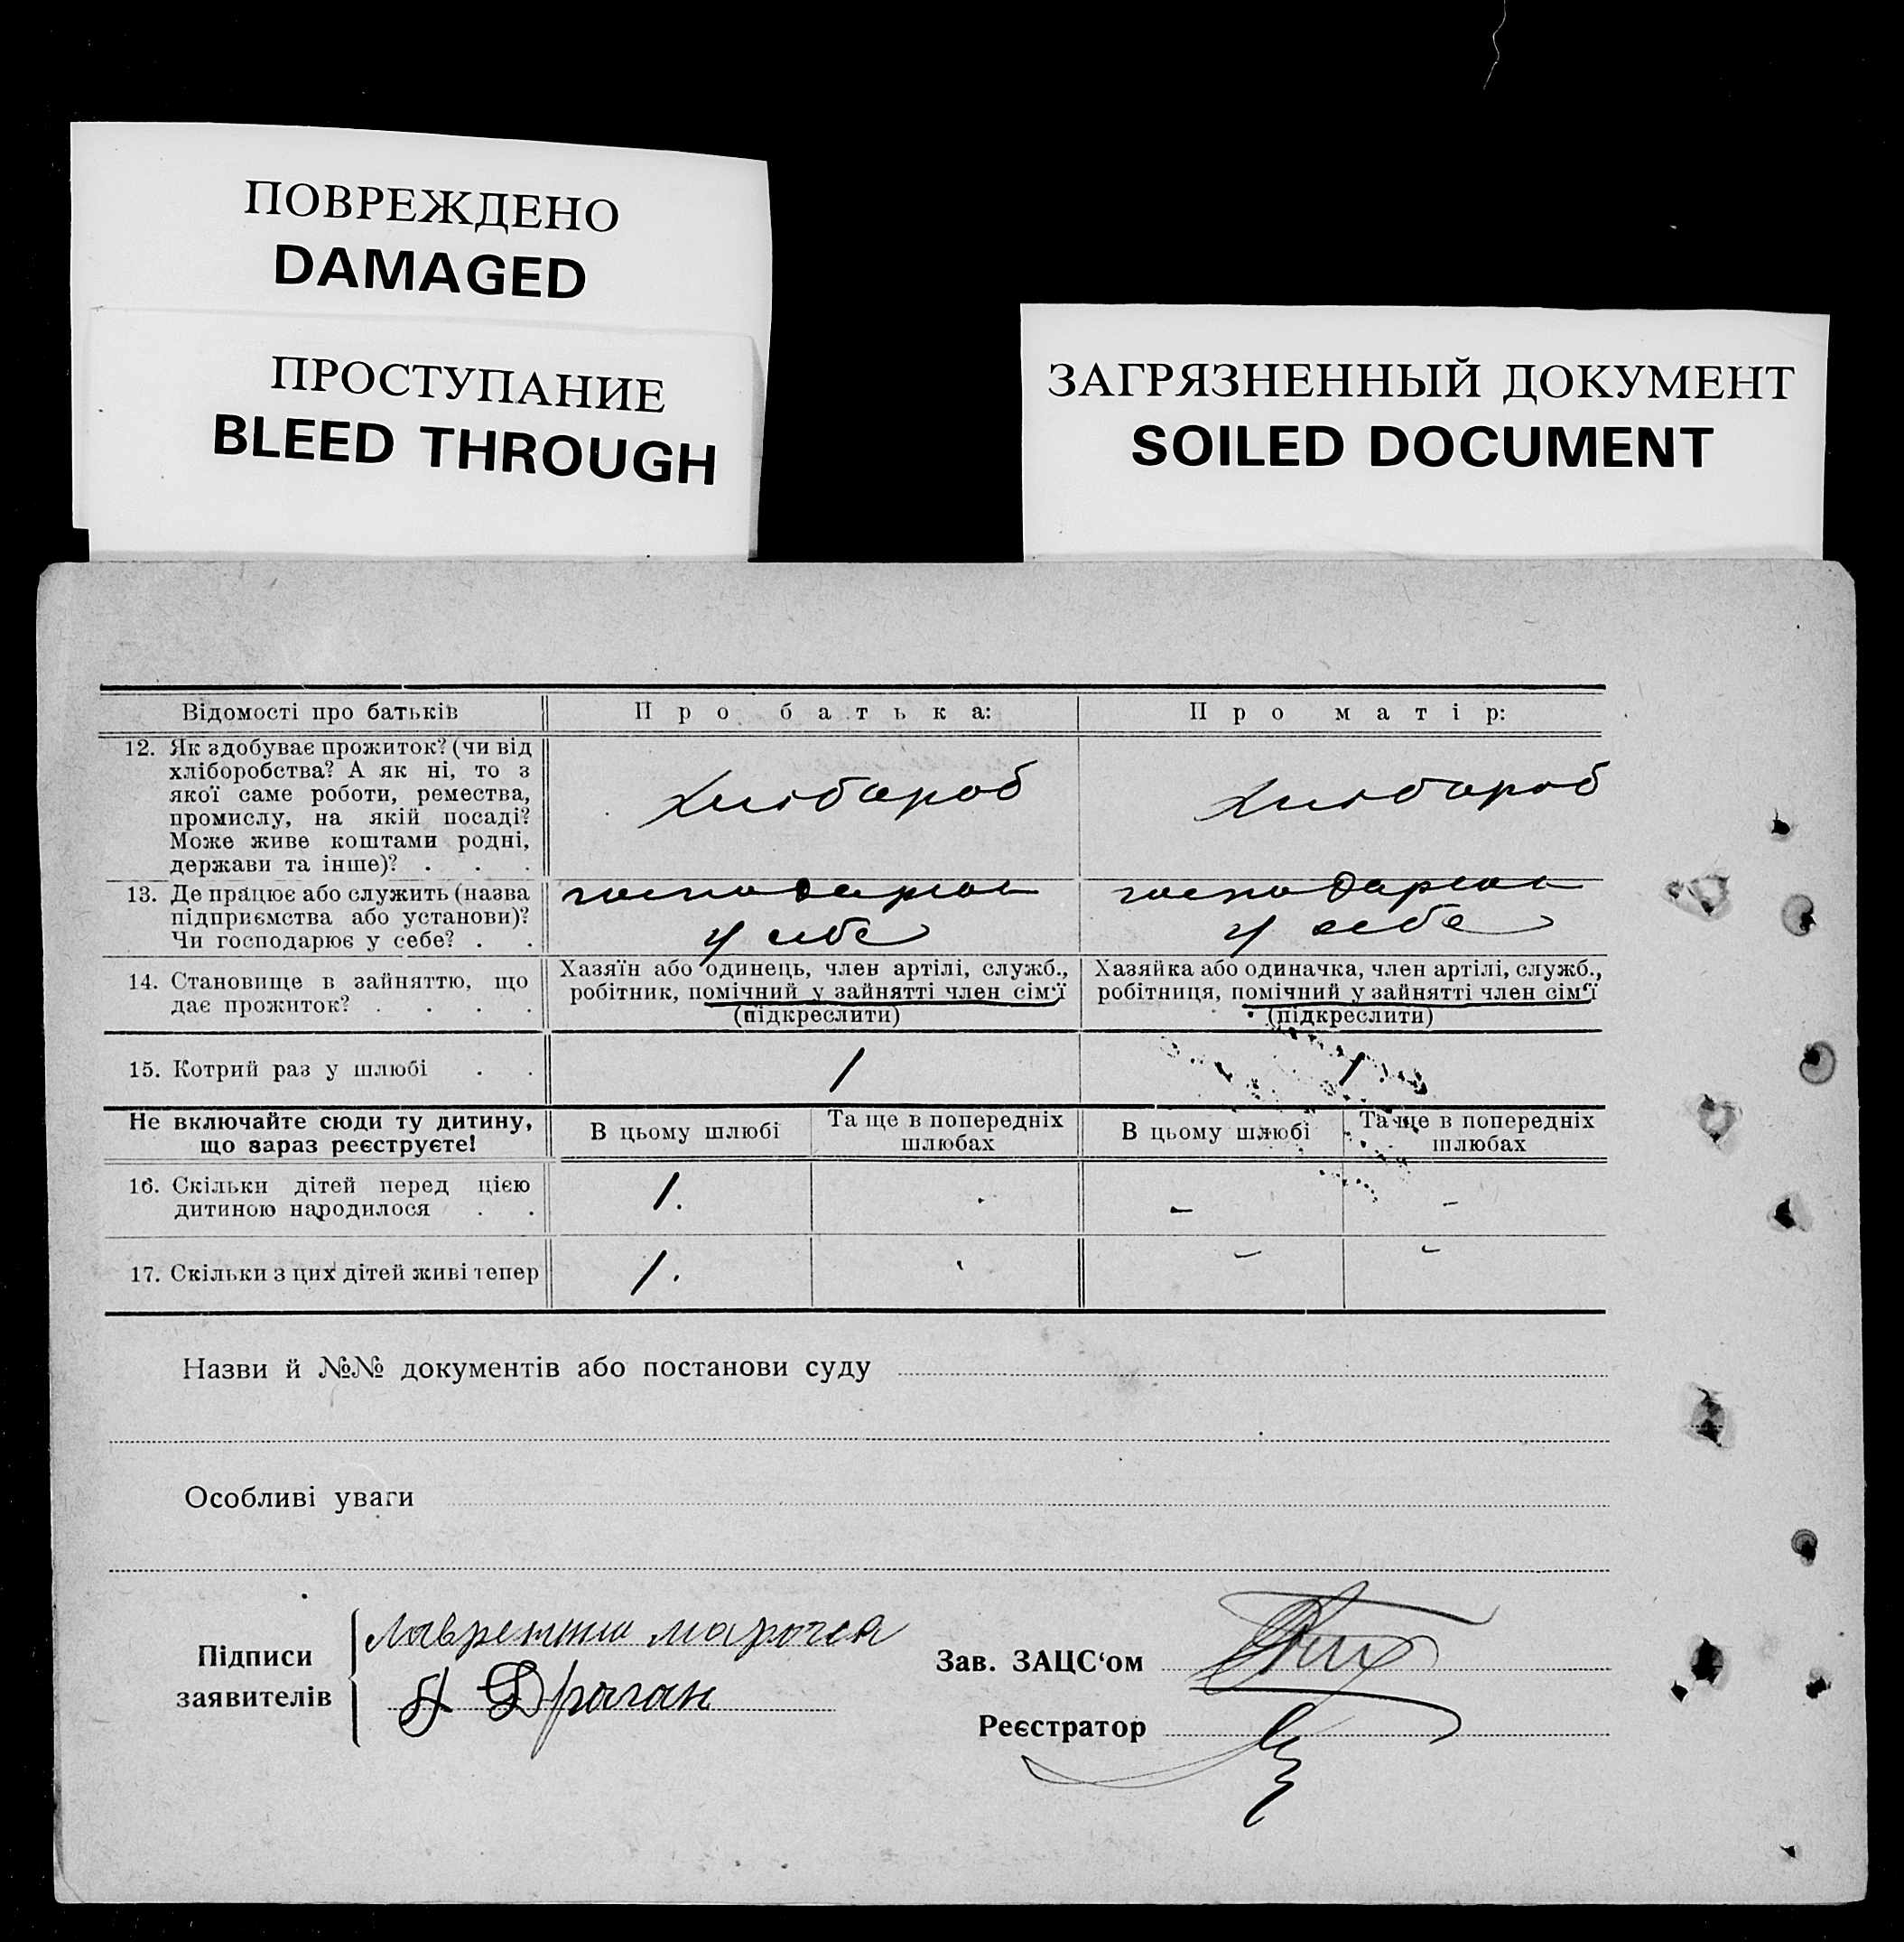 ПОВРЕЖДЕНО
DAMAGED
ПРОСТУПАНИЕ
BLEED THROUGH
ЗАГРЯЗНЕННЫЙ ДОКУМЕНТ
SOILED DOCUMENT
Відомості про батьків
Про батька:
Про матір:
12. Як здобуває прожиток? (чи від
хліборобства? А як ні, то з
якої саме роботи, ремества,
промислу, на якій посаді?
Може живе коштами родні,
держави та інше)? . . .
Хлібороб
Хлібороб
13. Де працює або служить (назва
підприємства або установи)?
Чи господарює у себе? . .
господарює
у себе
господарює
у себе
14. Становище в зайняттю, що
дає прожиток? . . . .
Хазяїн або одинець, член артілі, служб.,
робітник, помічний у зайнятті член сім'ї
(підкреслити)
Хазяйка або одиначка, член артілі, служб.,
робітниця, помічний у зайнятті член сім'ї
(підкреслити)
15. Котрий раз у шлюбі . .
1
1
Не включайте сюди ту дитину,
що зараз реєструєте!
В цьому шлюбі
Та ще в попередніх
шлюбах
В цьому шлюбі
Та ще в попередніх
шлюбах
16. Скільки дітей перед цією
дитиною народилося . .
1.
-
-
17. Скільки з цих дітей живі тепер
1.
-
-
Назви й №№ документів або постанови суду
Особливі уваги
Підписи
заявителів
Драган
Зав. ЗАЦС'ом
Реєстратор